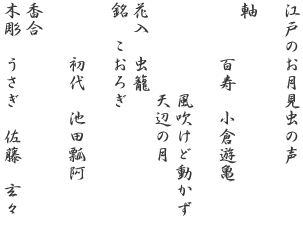 江戸のお月見虫の声
軸
百寿　小倉遊亀
風吹けど動かず
天辺の月
花入　虫籠
銘　こおろぎ
初代　池田瓢阿
香合
木彫　うさぎ　佐藤　玄々